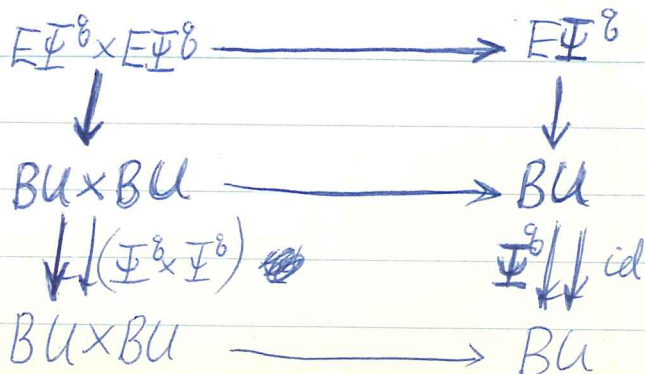 EΨ^q × EΨ^q → EΨ^q
BU × BU → BU
(Ψ^q × Ψ^q) Ψ^q id
BU × BU → BU